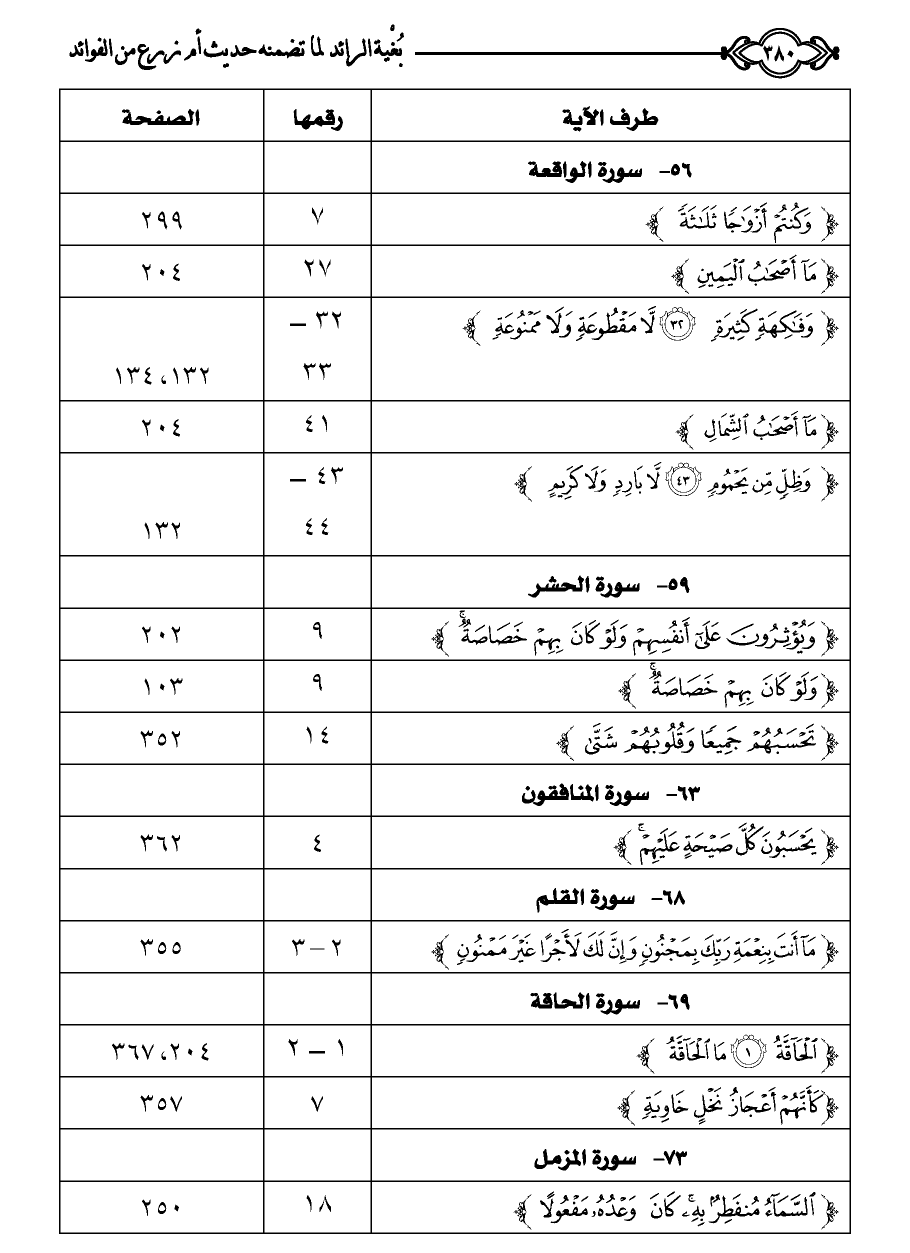 ٣٨٠ بُغْية الرائد لما تضمنه حديث أم زرع من الفوائد
طرف الآية رقمها الصفحة
٥٦- سورة الواقعة
﴿ وَكُنتُمْ أَزْوَٰجًا ثَلَٰثَةً ﴾ ٧ ٢٩٩
﴿ مَآ أَصْحَٰبُ ٱلْيَمِينِ ﴾ ٢٧ ٢٠٤
﴿ وَفَٰكِهَةٍ كَثِيرَةٍ ٣٢ لَّا مَقْطُوعَةٍ وَلَا مَمْنُوعَةٍ ﴾ ٣٢ –
٣٣ ١٣٢، ١٣٤
﴿ مَآ أَصْحَٰبُ ٱلشِّمَالِ ﴾ ٤١ ٢٠٤
﴿ وَظِلٍّ مِّن يَحْمُومٍ ٤٣ لَّا بَارِدٍ وَلَا كَرِيمٍ ﴾ ٤٣ –
٤٤ ١٣٢
٥٩- سورة الحشر
﴿ وَيُؤْثِرُونَ عَلَىٰٓ أَنفُسِهِمْ وَلَوْ كَانَ بِهِمْ خَصَاصَةٌۚ ﴾ ٩ ٢٠٢
﴿ وَلَوْ كَانَ بِهِمْ خَصَاصَةٌۚ ﴾ ٩ ١٠٣
﴿ تَحْسَبُهُمْ جَمِيعًا وَقُلُوبُهُمْ شَتَّىٰ ﴾ ١٤ ٣٥٢
٦٣- سورة المنافقون
﴿ يَحْسَبُونَ كُلَّ صَيْحَةٍ عَلَيْهِمْۚ ﴾ ٤ ٣٦٢
٦٨- سورة القلم
﴿ مَآ أَنتَ بِنِعْمَةِ رَبِّكَ بِمَجْنُونٍ وَإِنَّ لَكَ لَأَجْرًا غَيْرَ مَمْنُونٍ ﴾ ٢ – ٣ ٣٥٥
٦٩- سورة الحاقة
﴿ ٱلْحَآقَّةُ ١ مَا ٱلْحَآقَّةُ ﴾ ١ – ٢ ٢٠٤، ٣٦٧
﴿ كَأَنَّهُمْ أَعْجَازُ نَخْلٍ خَاوِيَةٍ ﴾ ٧ ٣٥٧
٧٣- سورة المزمل
﴿ ٱلسَّمَآءُ مُنفَطِرٌۢ بِهِۦۚ كَانَ وَعْدُهُۥ مَفْعُولًا ﴾ ١٨ ٢٥٠